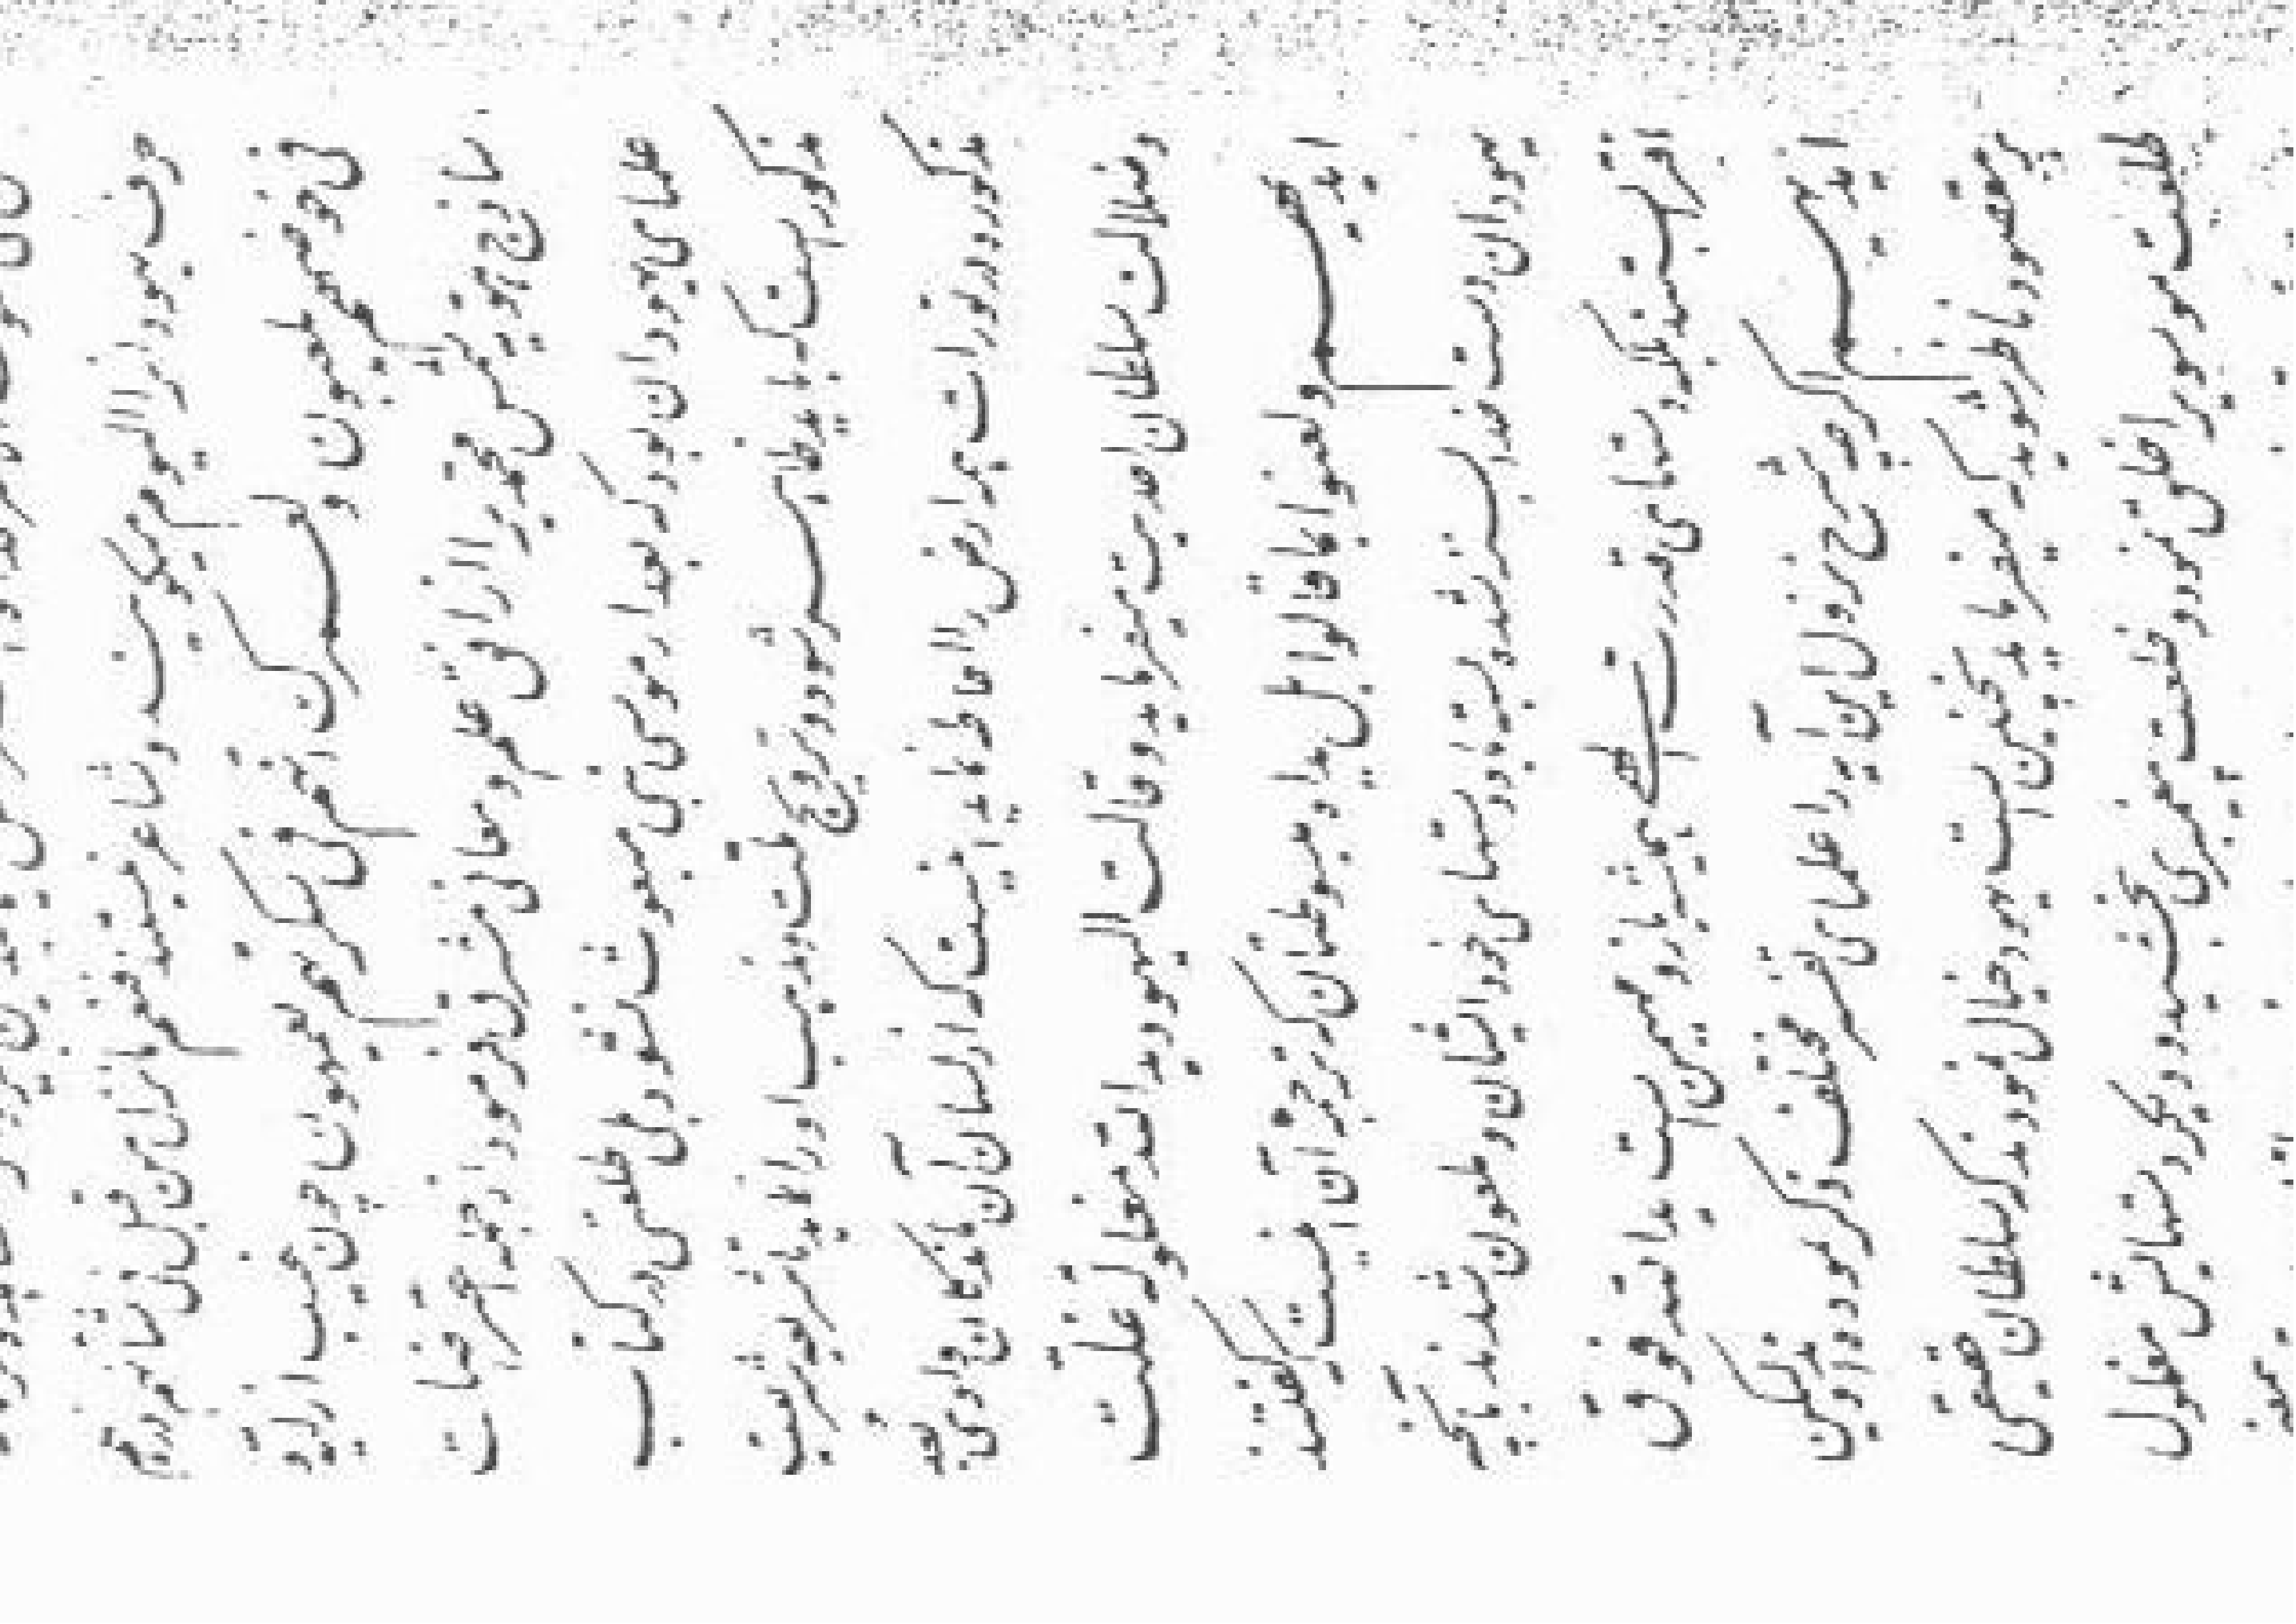 حرف یهود را الیوم میگویند و شاعر نیستند فنعم ما نزل من قبل فی شأنهم ذرهم
فی خوضهم یلعبون و لعمرک انهم لفی سکرتهم یعمهون چون غیب ازلی و
ساذج هویه شمس محمدی را از افق علم و معانی مشرق فرمود از جمله اعتراضات
علمای یهود آن بود که بعد از موسی نبی مبعوث نشود بلی طلعتی در کتاب
مذکور است که باید ظاهر شود و ترویج ملت و مذهب او را نماید تا شریعه شریعت
مذکوره در تورات همه ارض را احاطه نماید اینست که از لسان آن ماندگان وادی بعد
و ضلالت سلطان احدیت میفرماید و قالت الیهود ید الله مغلولة غلت
ایدیهم و لعنوا بما قالوا بل یداه مبسوطتان که ترجمه آن اینست که گفتند
یهودان دست خدا بسته شده بسته باد دستهای خود ایشان و ملعون شدند بآنچه
افترا بستند بلکه دستهای قدرت الهی همیشه باز و مهیمن است ید الله فوق
ایدیهم اگر چه شرح نزول این آیه را علمای تفسیر مختلف ذکر نموده‌اند ولکن
بر مقصود ناظر شوید که میفرماید نه چنین است که یهود خیال نمودند که سلطان حقیقی
طلعت موسوی را خلق نمود و خلعت پیغمبری بخشید و دیگر دستهایش مغلول